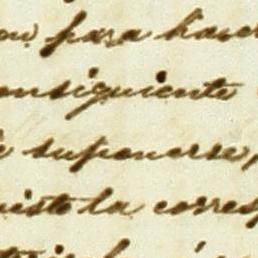 para hacer
onsiguiente
suponerse,
iste la corres